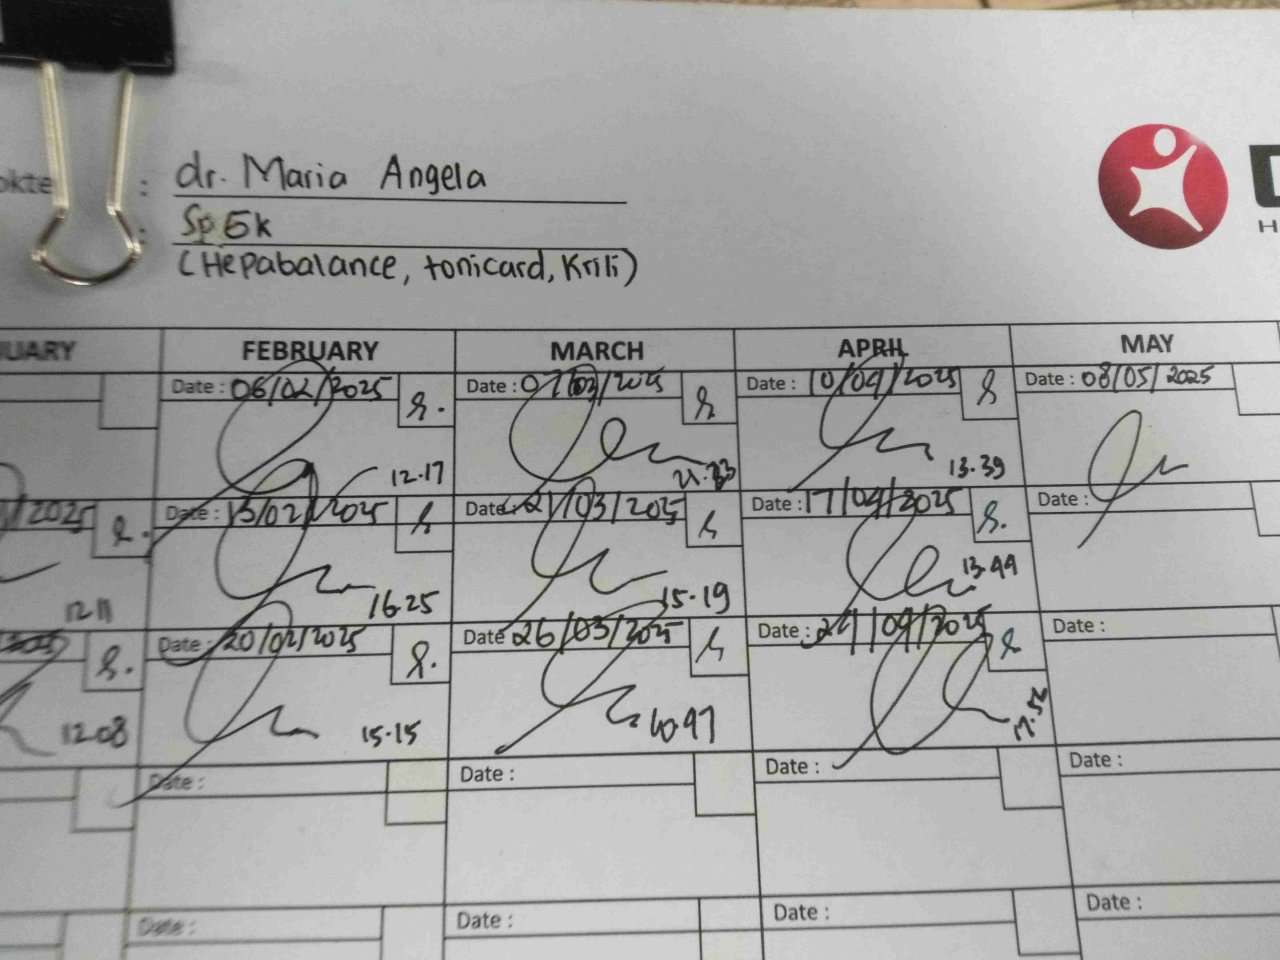 : dr. Maria Angela
: Sp Ek
(Hepabalance, tonicard, Krili)
FEBRUARY MARCH APRIL MAY
Date : 06/02/2025 Date : 07/03/2025 Date : 10/04/2025 Date : 08/05/2025
12.17 13.39
Date : 13/02/2025 Date : 21/03/2025 Date : 17/04/2025 Date :
12.11 16.25 15.19 13.44
Date : 20/02/2025 Date 26/03/2025 Date : 24/04/2025 Date :
12.08 15.15 17.52
Date : Date : Date : Date :
Date : Date : Date : Date :